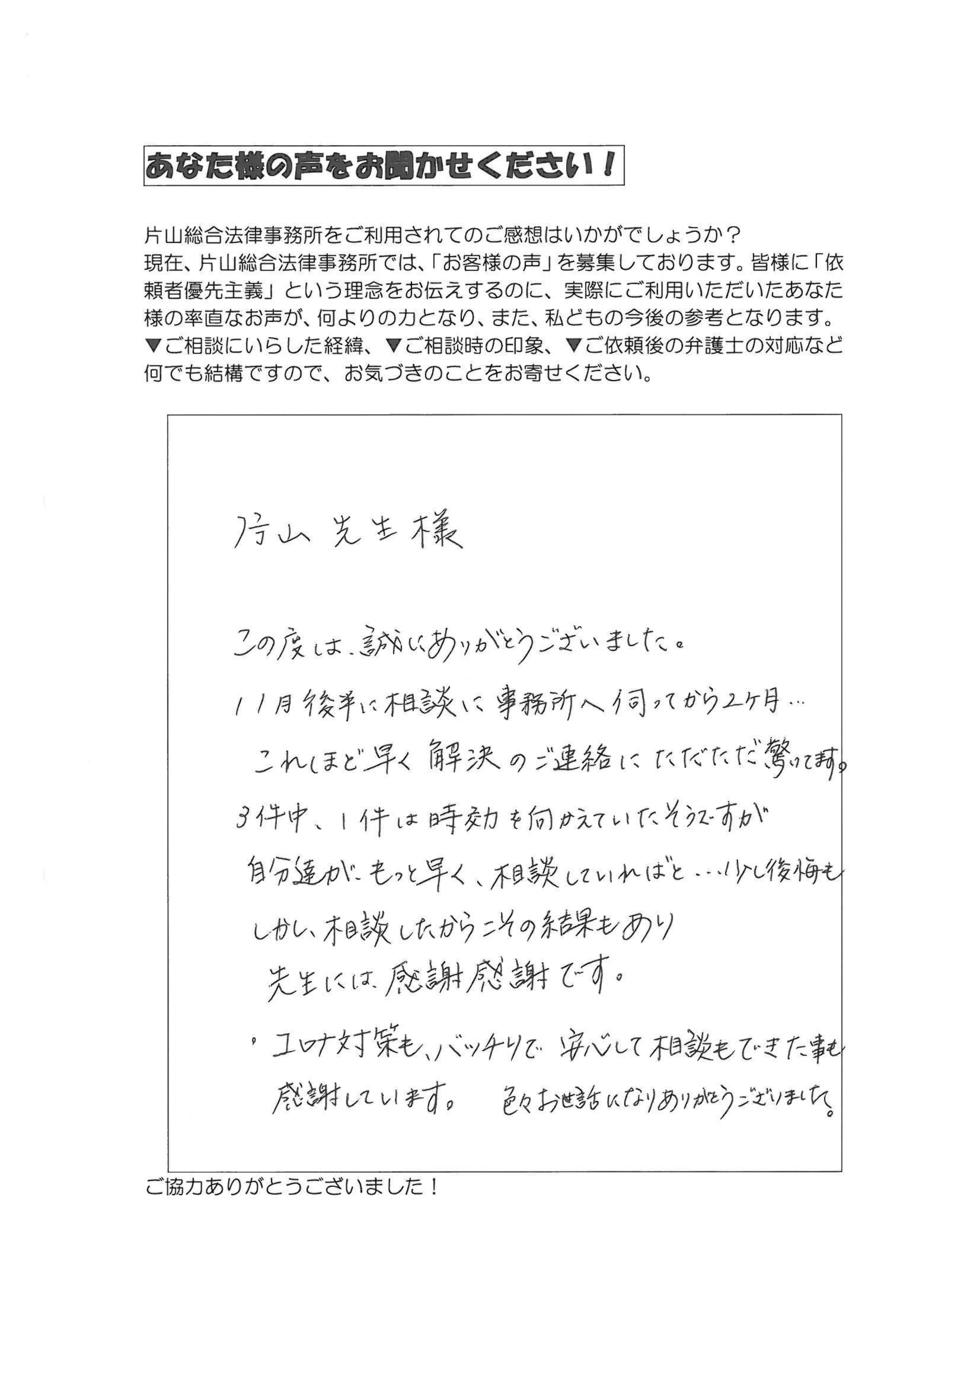 あなた様の声をお聞かせください！
片山総合法律事務所をご利用されてのご感想はいかがでしょうか？
現在、片山総合法律事務所では、「お客様の声」を募集しております。皆様に「依
頼者優先主義」という理念をお伝えするのに、実際にご利用いただいたあなた
様の率直なお声が、何よりの力となり、また、私どもの今後の参考となります。
▼ご相談にいらした経緯、▼ご相談時の印象、▼ご依頼後の弁護士の対応など
何でも結構ですので、お気づきのことをお寄せください。
片山 先生様
この度は、誠にありがとうございました。
11月後半に相談に事務所へ伺ってから2ヶ月…
これほど早く解決のご連絡にただただ驚いてます。
3件中、1件は時効も向かえていたそうですが
自分達が、もっと早く、相談していればと…少し後悔も
しかし、相談したからこその結果もあり
先生には感謝感謝です。
・コロナ対策も、バッチリで安心して相談もできた事も
感謝しています。 色々お世話になりありがとうございました。
ご協力ありがとうございました！